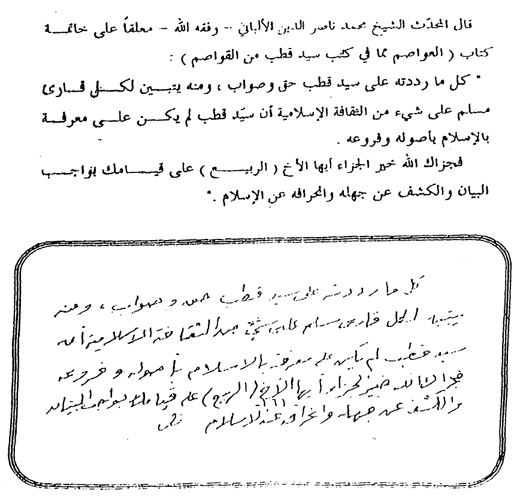 قال المحدّث الشيخ محمد ناصر الدين الألباني -- وفقه الله - معلقاً على خاتمـــة
كتاب ( العواصم مما في كتب سيد قطب من القواصم ) :
" كل ما رددته على سيد قطب حق وصواب ، ومنه يتبـين لكـــل قـــارئ
مسلم على شيء من الثقافة الإسلامية أن سيّد قطب لم يكـــن علـــى معرفـــة
بالإسلام بأصوله وفروعه .
فجزاك الله خير الجزاء أيها الأخ ( الربيـع ) على قيـامك بواجـب
البيان والكشف عن جهله وانحرافه عن الإسلام . "
كل ما رددته على سيد قطب حق وصواب ، ومنه
يتبين لكل قارئ مسلم على شيء من الثقافة الإسلامية أن
سيد قطب لم يكن على معرفة بالإسلام بأصوله وفروعه
فجزاك الله خير الجزاء أيها الأخ (الربيع) على قيامك بواجب البيان
والكشف عن جهله وانحرافه عن الإسلام